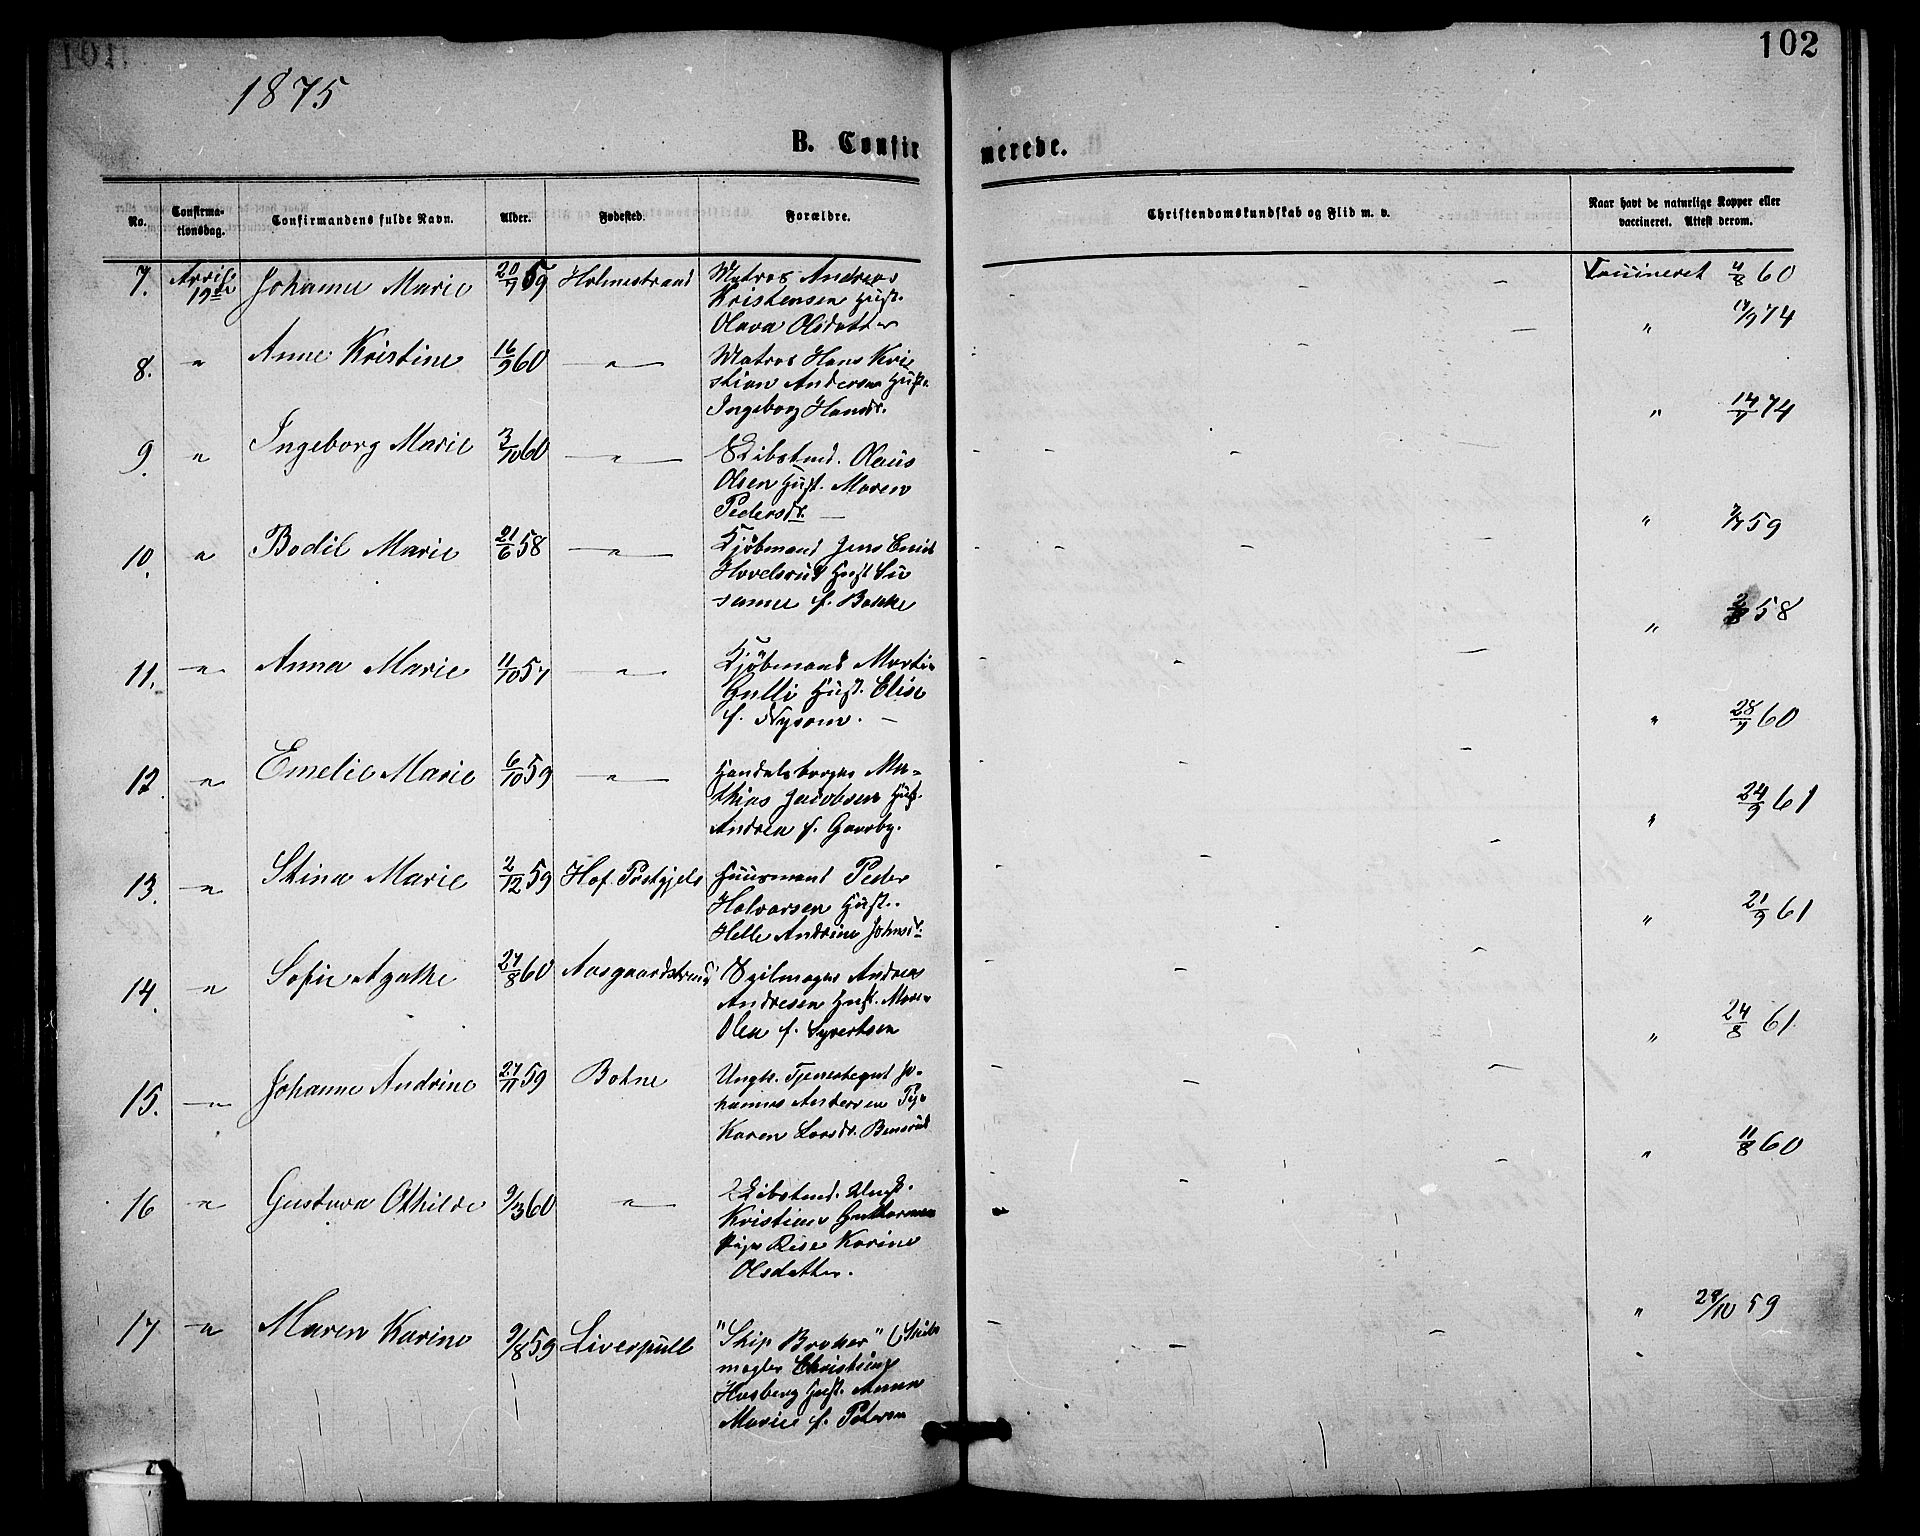 102
1875
B. Confirmerede.
No. Confirmationsdag. Confirmandens fulde Navn. Alder. Fødested. Forældre. Christendomskundskab og Flid m. v. Naar havt de naturlige Kopper eller vaccineret. Attest derom.
7. April 19de Johanne Marie 20/7 59 Holmestrand Matros Andreas
Kristensen Hust.
Olava Olsdatter
Vaccineret 4/8 60
8. " Anne Kristine 16/9 60 — " — Matros Hans Kri-
stian Andersen Hust.
Ingeborg Hansdr.
" 14/9 74
9. " Ingeborg Marie 3/10 60 — " — Skibstmd. Olaus
Olsen Hust. Maren
Pedersdr. —
" 14/7 74
10. " Bodil Marie 21/6 58 — " — Kjøbmand Jens Emil
Hovelsrud Hust Su
sanne f. Bakke
" 59
11. " Anna Marie 11/10 57 — " — Kjøbmand Marti-
Gulli Hust. Elise
f. Nysom. —
" 58
12. " Emelie Marie 6/10 59 — " — Handelsborger Ma-
thias Jacobsen Hust.
Andrea f. Gaarby.
" 28/7 60
13. " Stina Marie 2/12 59 Hof. Præstgjeld Huusmand Peder
Halvorsen Hust.
Helle Andrine Johnsd.
" 24/9 61
14. " Sofie Agathe 27/8 60 Aasgaardstrand Seilmager Andreas
Andresen Hust. Mare-
Olea f. Syvertsen
" 21/9 61
15. " Johanne Andrine 27/11 59 Botne Ungk. Tjenestegut Jo-
hannes Andersen Pige
Karen Larsdr.
" 24/8 61.
16 " Gustava Othilde 9/3 60 — " — Skibstmd. Ungk.
Kristian Guttormsen
Pige Elise Karine
Olsdatter.
" 11/8 60
17 " Maren Karine 9/8 59 Liverpull "Skip Broker" (Skibs
mægler Christian
Husberg Hust. Anna
Marie f. Petersen
" 29/10 59